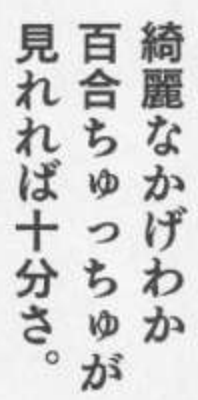 綺麗なかげわか
百合ちゅっちゅが
見れれば十分さ。